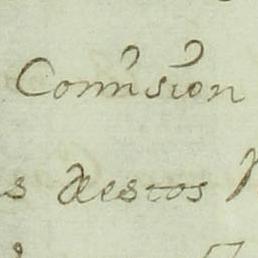 Comision
s destos